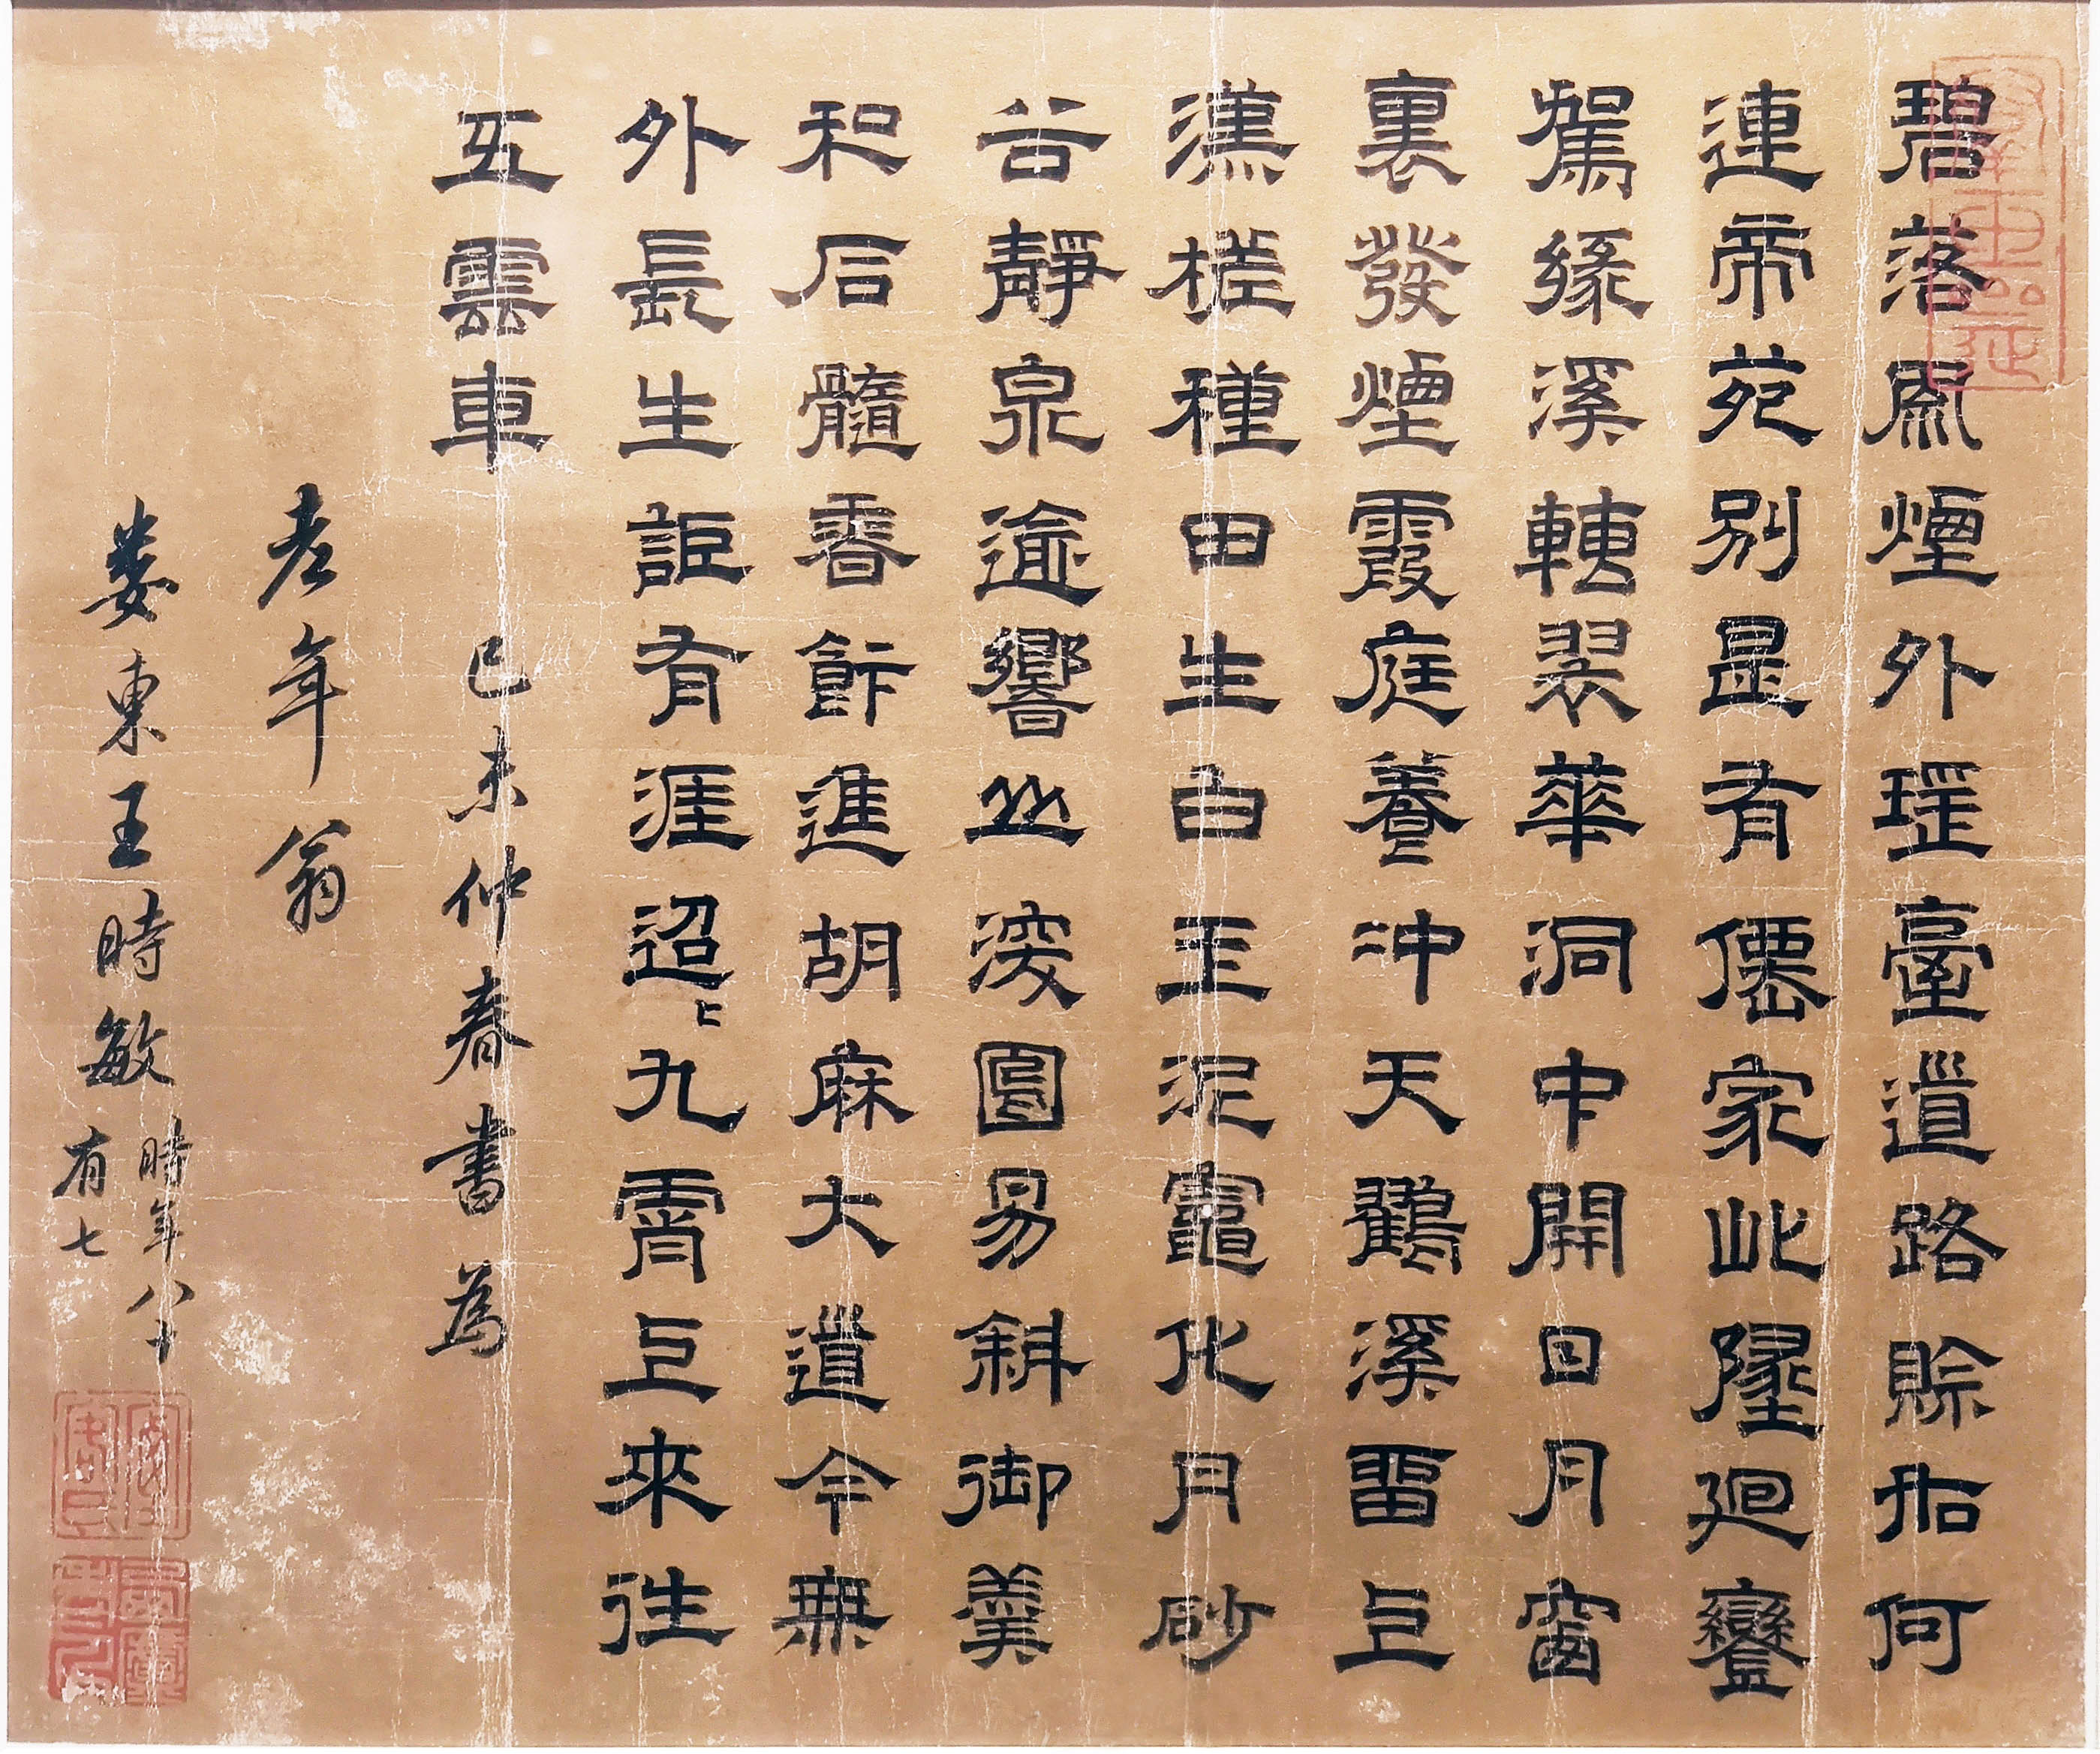 碧落風煙外瑤臺道路賒如何
連帝苑別是有僊家此墬迴鑾
駕緣溪轉翠華洞中開日月窗
裏發煙霞庭養沖天鶴溪留上
漢槎種田生白玉泥竈化丹砂
谷靜泉逾響山深日易斜御羹
和石髓香飯進胡麻大道今無
外長生詎有涯迢〻九霄上來往
五雲車 己未仲春書為
老年翁
婁東王時敏
時年八十
有七